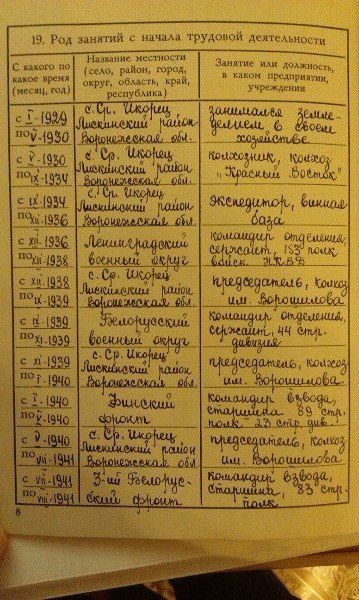 19. Род занятий с начала трудовой деятельности
С какого по какое время (месяц, год)
Название местности (село, район, город, округ, область, край, республика)
Занятие или должность, в каком предприятии, учреждении
с I-1929
по V-1930
с. Ср. Икорец
Лискинский район
Воронежская обл.
занимался земле-
делием в своем
хозяйстве
с V-1930
по IX-1934
с. Ср. Икорец
Лискинский район
Воронежская обл.
колхозник, колхоз
"Красный Восток"
с IX-1934
по XII-1936
с. Ср. Икорец
Лискинский район
Воронежская обл.
экспедитор, винная
база
с XII-1936
по XII-1938
Ленинградский
военный округ
командир отделения,
сержант, 183 полк
войск НКВД
с XII-1938
по IX-1939
с. Ср. Икорец
Лискинский район
Воронежская обл.
председатель, колхоз
им. Ворошилова
с IX-1939
по XI-1939
Белорусский
военный округ
командир отделения,
сержант, 44 стр.
дивизия
с XI-1939
по I-1940
с. Ср. Икорец
Лискинский район
Воронежская обл.
председатель, колхоз
им. Ворошилова
с I-1940
по V-1940
Финский
фронт
командир взвода,
старшина 89 стр.
полк 23 стр. див.
с V-1940
по VII-1941
с. Ср. Икорец
Лискинский район
Воронежская обл.
председатель, колхоз
им. Ворошилова
с VII-1941
по VIII-1941
3-ий Белорус-
ский фронт.
командир взвода,
старшина, 83 стр.
полк
8